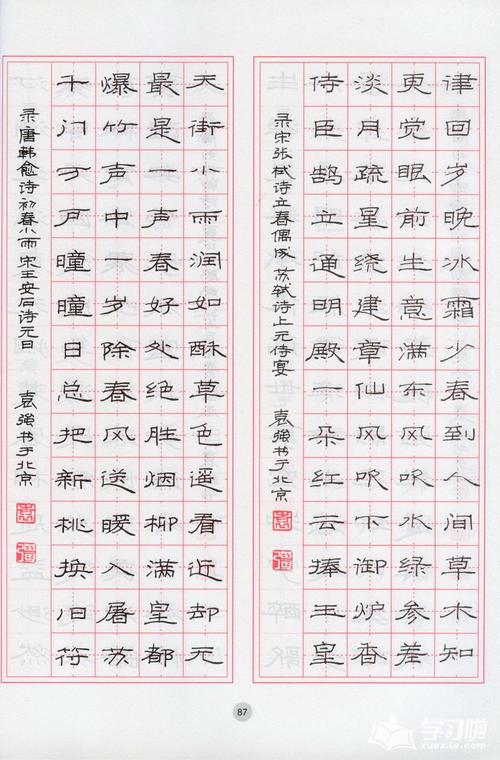 律回岁晚冰霜少春到人间草木知
更觉眼前生意满东风吹水绿参差
淡月疏星绕建章仙风吹下御炉香
侍臣鹄立通明殿一朵红云捧玉皇
录宋张栻诗立春偶成 苏轼诗上元侍宴 袁强书于北京
袁
强
天街小雨润如酥草色遥看近却无
最是一声春好处绝胜烟柳满皇都
爆竹声中一岁除春风送暖入屠苏
千门万户曈曈日总把新桃换旧符
录唐韩愈诗初春小雨宋王安石诗元日 袁强书于北京
袁
强
87
学习啦
xuexila.com